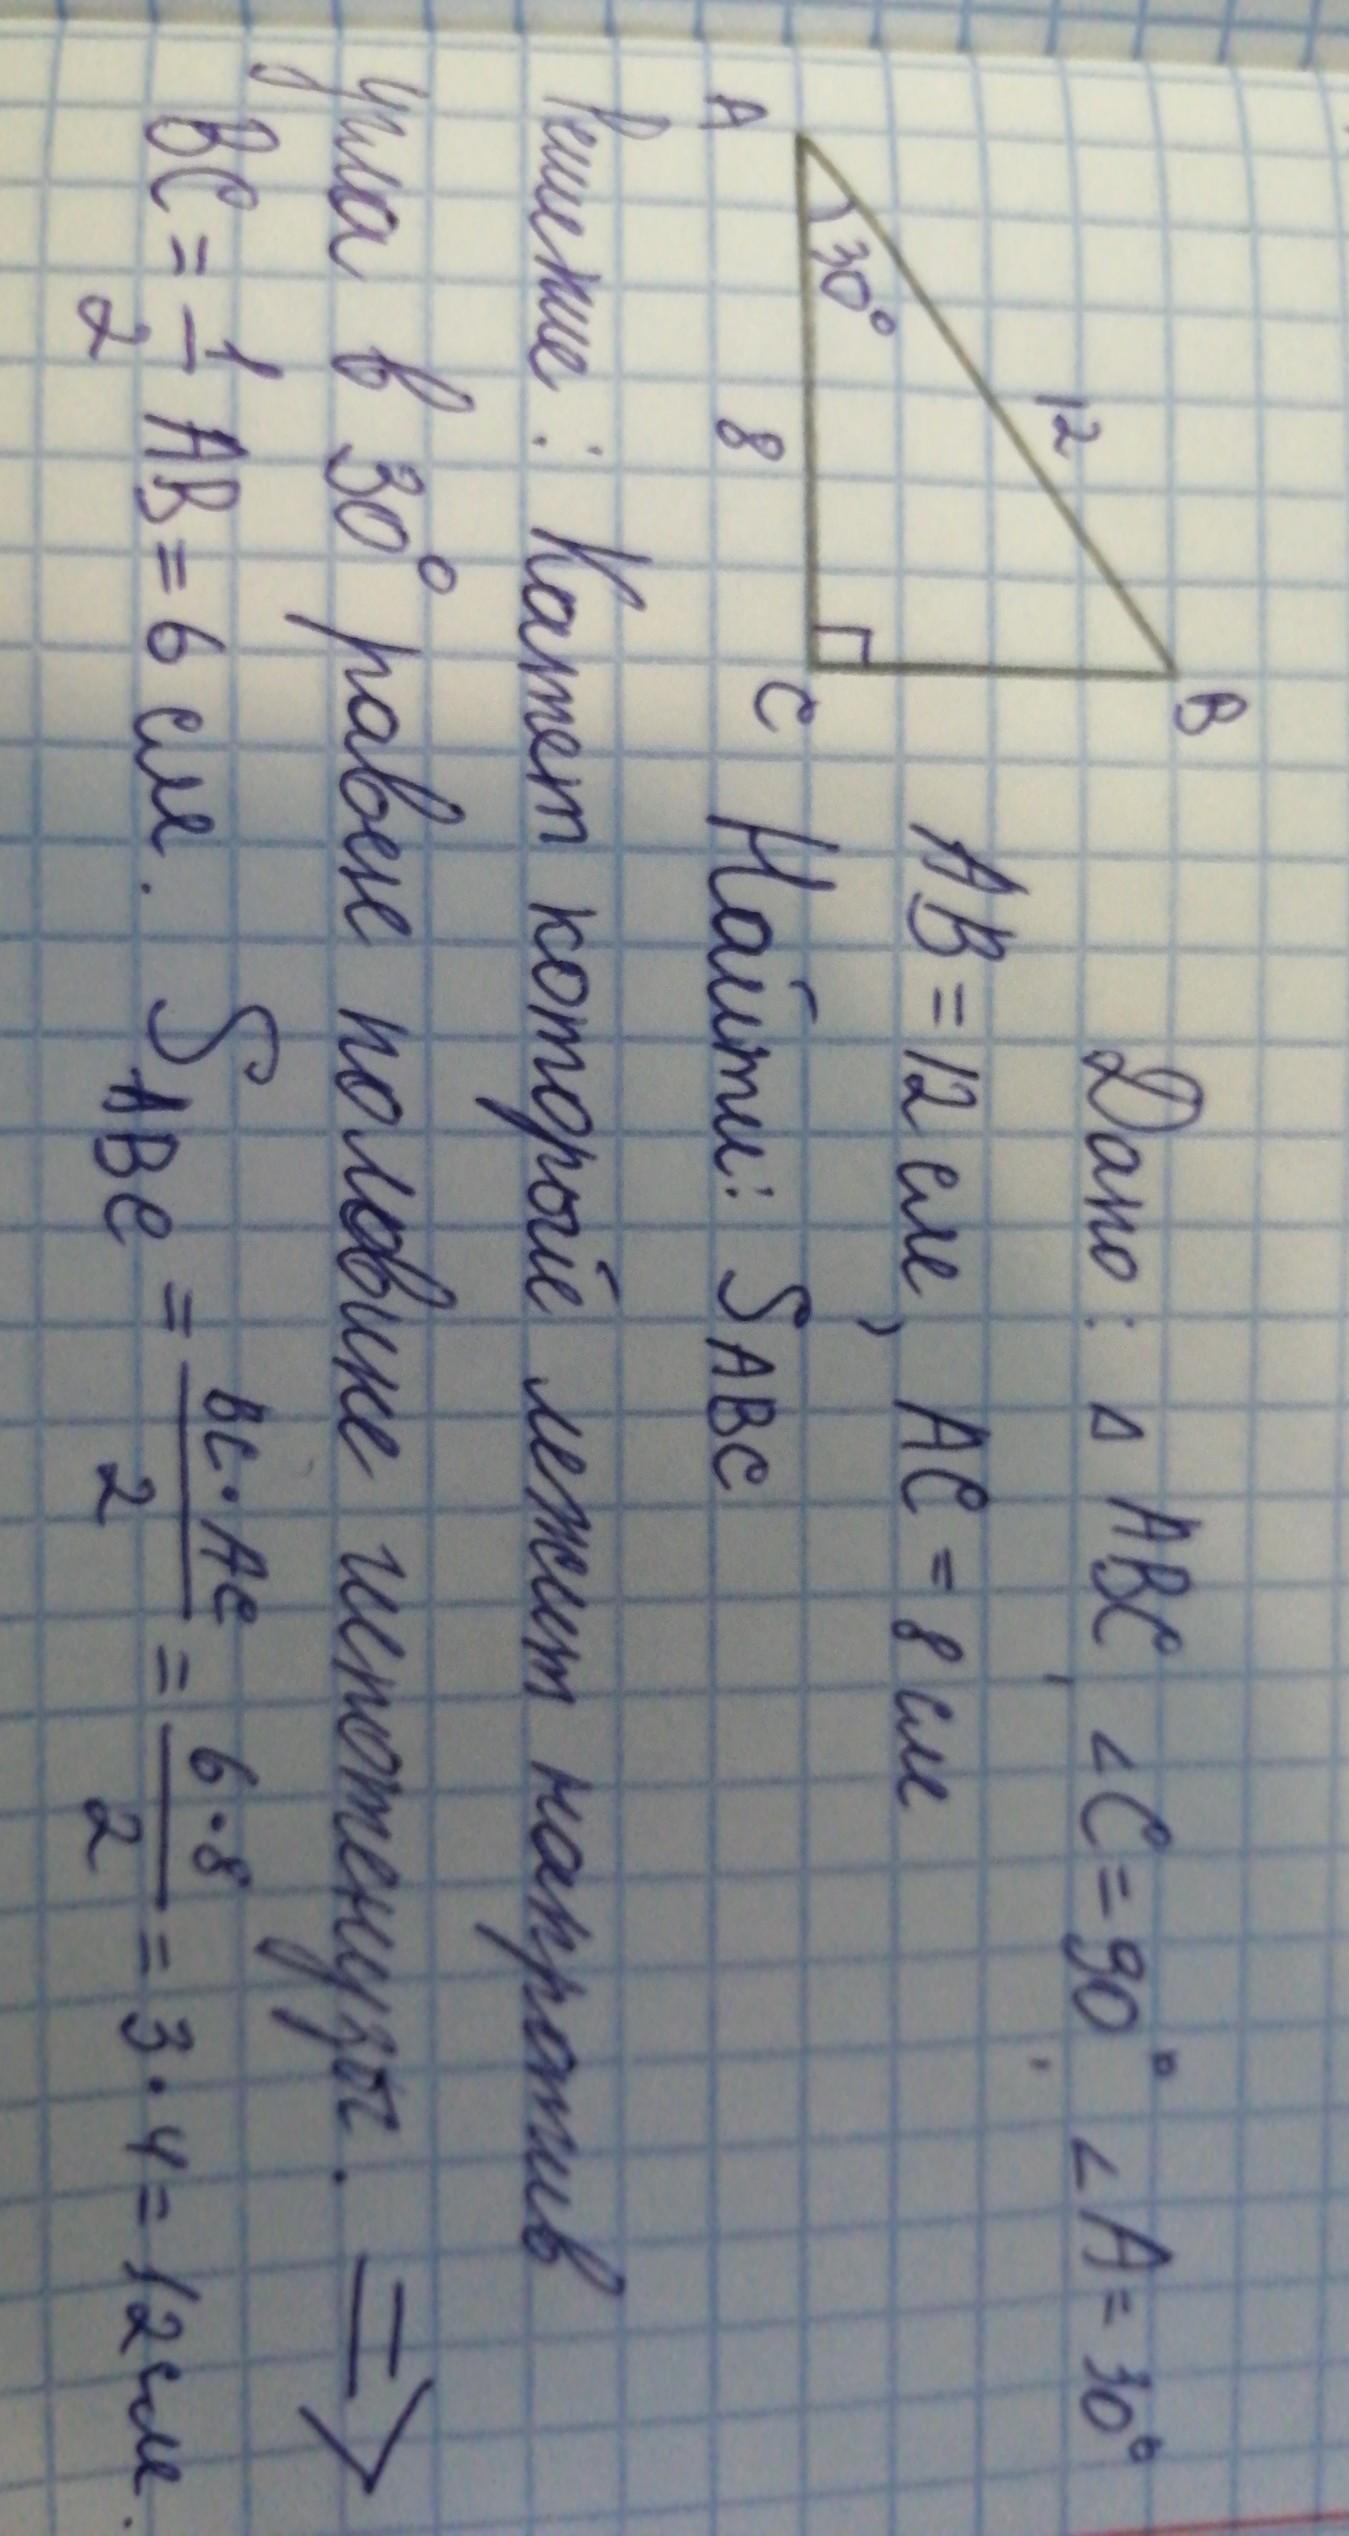 Дано: △ ABC, ∠C=90°, ∠A=30°
AB=12 см, AC=8 см
Найти: S ABC
B
12
30°
A
8
C
Решение: Катет который лежит напротив
угла в 30° равен половине гипотенузы. =>
BC = 1/2 AB = 6 см. S ABC = BC·AC/2 = 6·8/2 = 3·4=12 см.